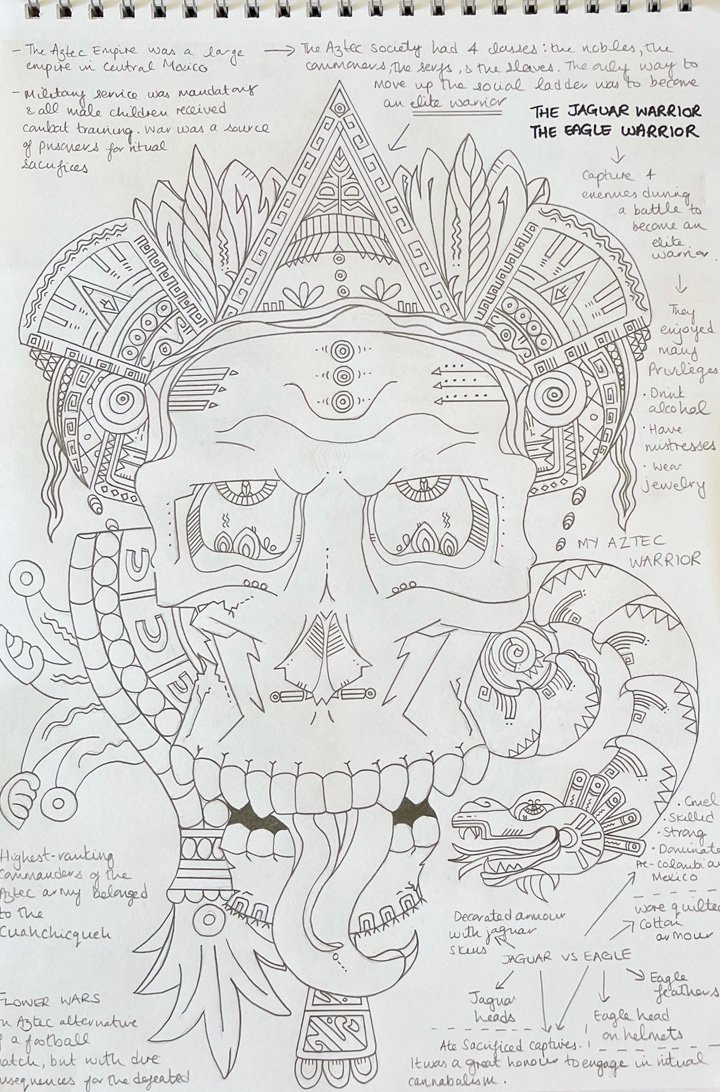 - The Aztec Empire was a large
empire in Central Mexico
- Military service was mandatory
& all male children received
combat training. War was a source
of prisoners for ritual
sacrifices
→ The Aztec society had 4 classes: the nobles, the
commoners, the serfs, & the slaves. The only way to
move up the social ladder was to become
an elite warrior
THE JAGUAR WARRIOR
THE EAGLE WARRIOR
Capture 4
enemies during
a battle to
become an
elite
warrior.
They
enjoyed
many
Privileges
• Drink
alcohol
• Have
mistresses
• Wear
jewelry
MY AZTEC
WARRIOR
• Cruel
• Skilled
• Strong
• Dominated
Pre-colombian
Mexico
Wore quilted
cotton
armour
Decorated armour
with jaguar
skins
JAGUAR VS EAGLE
Jaguar
heads
Eagle head
on helmets
Eagle
feathers
Ate sacrificed captures.
It was a great honour to engage in ritual
cannabalism.
Highest-ranking
commanders of the
Aztec army belonged
to the
Cuahchicqueh
FLOWER WARS
an Aztec alternative
of a football
match, but with dire
consequences for the defeated